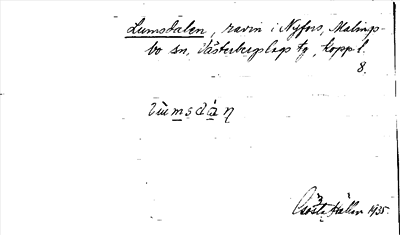 Lumsdalen, ravin i Nyfors, Malings-
bo sn, Västerbergslags tg, Kopp. l.
8.
lùmsdàn
Gösta Häller 1935.